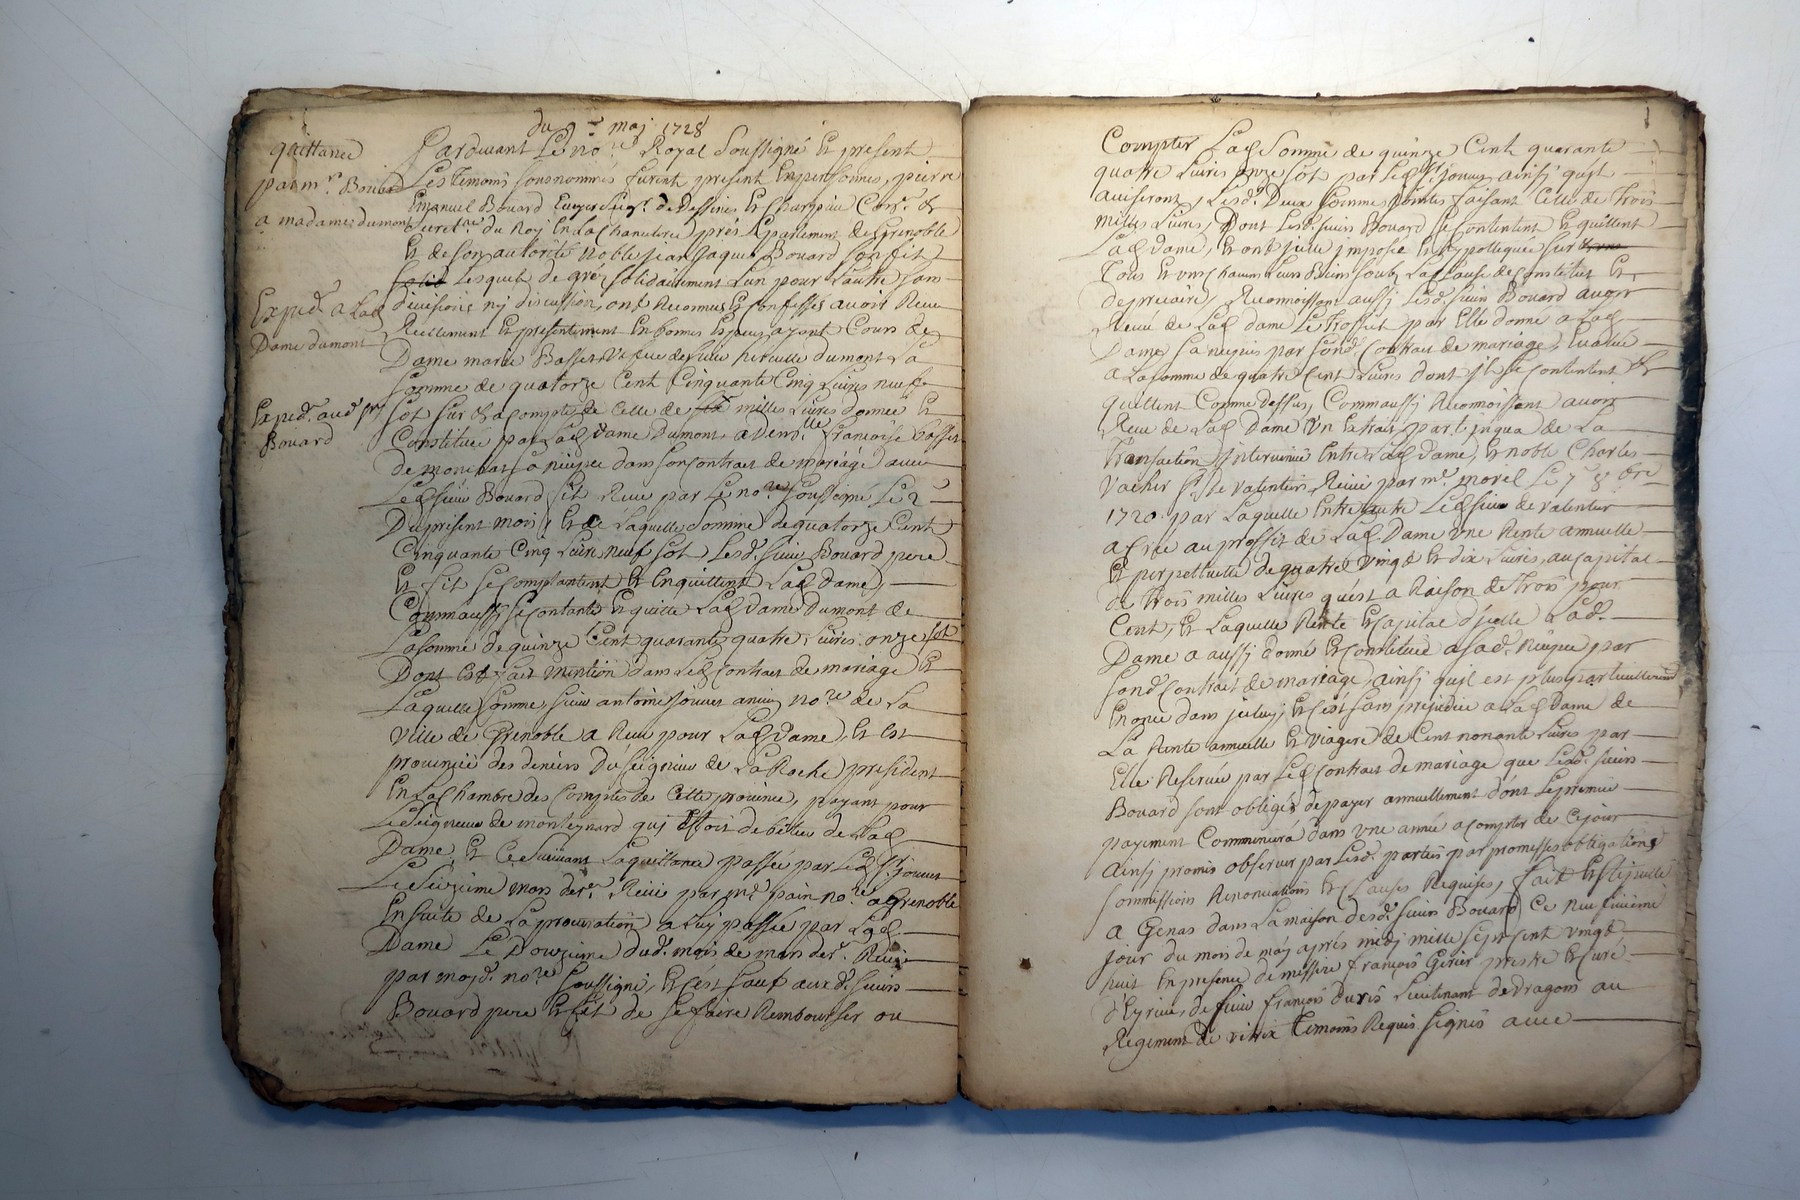 du 9e may 1728
quittance
par mr. Bouard
a madame dumont
Expedé. a lad.
Dame dumont
Expedé. aud. sr
Bouard
Pardevant Le nore. Royal Soussigné Et present
Les temoins sousnommés furent present En personnes, pierre
Emanuel Bouard Ecuyer Seigr. de Dessine, Et Charpieu Conr. &
Secretre du Roy En La Chancelerie prés Le parlement de Grenoble
Et de son autorité Noble jean Jaques Bouard son fit
Lesquels de gré solidairement L'un pour L'autre sans
division ny discussion, ont Reconnus Et Confessés avoir Receu
Reellement Et presentement En bonnes Especes ayant Cours de
Dame marie Basset Veufve de sieur hercule dumont La
somme de quatorze Cent Cinquante Cinq Livres neuf
sol sur & a compte de Celle de milles Livres donnée Et
Constituée par Lad. dame Dumont a demlle francoise basset
de montchat sa niepce dans son contrait de mariage avec
Led. sieur Bouard fit Receu par Le nore soussigné Le 2
Du present mois, Et de Laquelle Somme de quatorze Cent
Cinquante Cinq Livres neuf sol Lesd. sieurs Bouard pere
Et fit se Comptantent Et En quittent Lad. dame,
Comm'aussy se contante Et quitte Lad. dame Dumont de
La somme de quinze Cent quarante quatre Livres onze sol
Dont Est fait mention dans Led. Contrait de mariage Et
Laquelle Somme, sieur antoine jouvet ancien nore de La
Ville de Grenoble a Receu pour Lad. Dame, Et Est
provenue des deniers Du Seigneur de La Roche president
En La Chambre des Comptes de Cette province, payant pour
Le Seigneur de monteynard quy Estoit debiteur de Lad.
Dame, Et Ce Suivant La quittance passée par Led. Sr. jouvet
Le Sezieme mars der. Receu par me. pain nore. a Grenoble
En suite de La procuration a Luy passée par Lad.
Dame Le Douzieme dud. mois de mars der. Receu
par moyd. nore soussigné, Et C'est sauf auxd. sieurs
Bouard pere Et fit de se faire Rembourser ou
Compter Lad. Somme de quinze Cent quarante
quatre Livres onze sol par Led. Sr. jouvet ainsi qu'il
aviseront, Lesd. Deux sommes jointes faisant Celle de Trois
milles Livres, Dont Lesd. sieurs Bouard se Contentent Et quittent
Lad. Dame, Et ont jcelle imposée Et hyppotequée sur
Tous Et un Chacun Leurs Biens soub La Clause de Constitut Et
de precaire, Reconnoissant aussi Lesd. sieurs Bouard avoir
Receu de Lad. dame Le Trosset par Elle donné a Lad.
Dame sa niepce par sond. Contrait de mariage, Evalué
a La somme de quatre Cent Livres dont jls se Contentent &
quittent Comme dessus, Comm'aussi Reconnoissent avoir
Receu de Lad. Dame Un Extrait par de La
Transaction Intervenüe Entre Lad. dame, Et noble Charles
Vacher Sr. de Valentier, Receüe par me. morel Le 7e 8bre
1720. par Laquelle Entre autre Led. sieur de Valentier
a au proffit de Lad. Dame une Rente annuelle
Et perpettuelle de quatre vingt Et dix Livres, au Capital
de Trois milles Livres qu'est a Raison de Trois pour
Cent, Et Laquelle Rente Et Capital d'jcelle Lad.
Dame a aussi donné Et Constitué a Sad. niepce par
sond. Contrait de mariage, ainsi qu'il est plus particulierement
Enoncé dans jceluy; Et C'est sans prejudice a Lad. Dame de
La Rente annuelle Et Viagere de Cent nonante Livres par
Elle Reservée par Led. Contrait de mariage que Lesd. sieurs
Bouard sont obligés de payer annuellement dont Le premier
payement Commencera dans une année a compter de Ce jour
Ainsi promis observer par Lesd. parties par promesses obligations
soumissions Renonciations Et Clauses Requises, fait Et
a Genas dans La maison desd. sieurs Bouard Ce neufvieme
jour du mois de may aprés midy mille sept cent vingt
huit En presence de messire françois Girier prestre Et Curé
d'Eyrieu, de sieur françois duris Lieutenant de dragons au
Regiment de vitrix Temoins Requis Signés avec